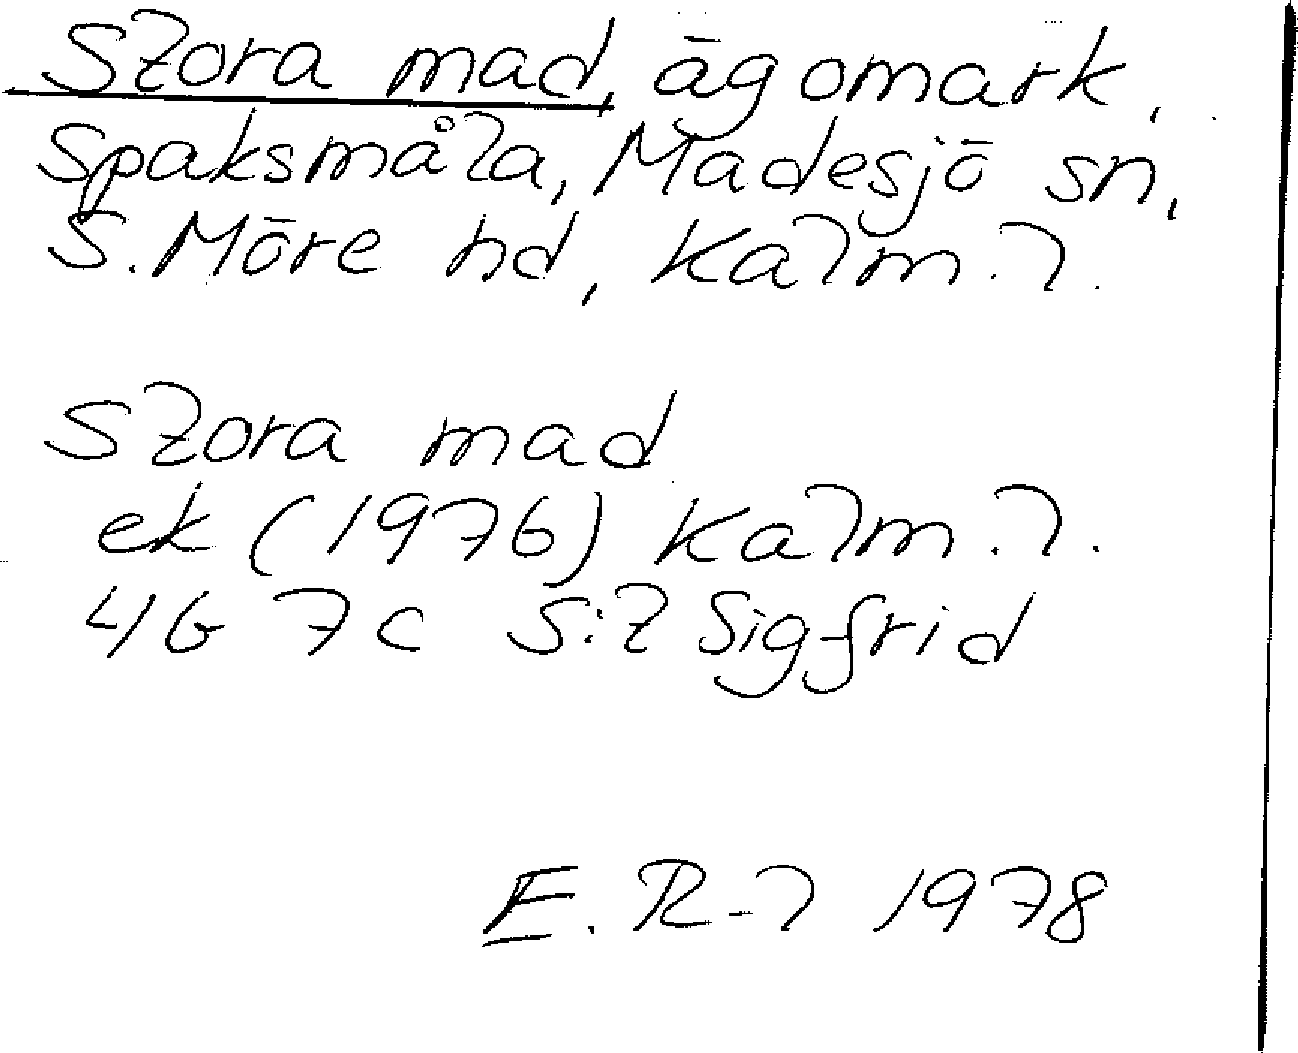 Stora mad, ägomark,
Spaksmåla, Madesjö sn,
S. Möre hd, Kalm. l.
Stora mad
ek (1976) Kalm. l.
4G 7c S:t Sigfrid
E. R-l 1978